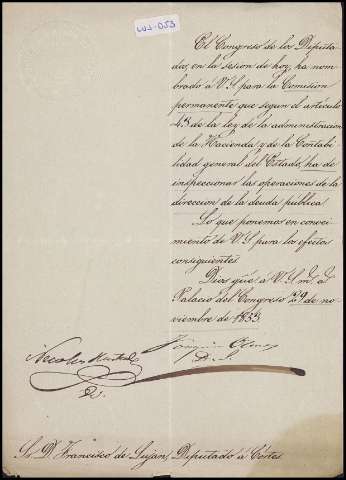 El Congreso de los Diputa-
dos, en la sesion de hoy, ha nom-
brado á V.S. para la Comision
permanente que segun el articulo
43 de la ley de la administracion
de la Hacienda y de la Contabi-
lidad general del Estado, ha de
inspeccionar las operaciones de la
direccion de la deuda publica.
Lo que ponemos en conoci-
miento de V.S. para los efectos
consiguientes.
Dios gũe á V.S. m. a.
Palacio del Congreso 29 de no-
viembre de 1853.
Nicolas Hurtado
D. S.
Sr. D. Francisco de Lujan, Diputado á Córtes.